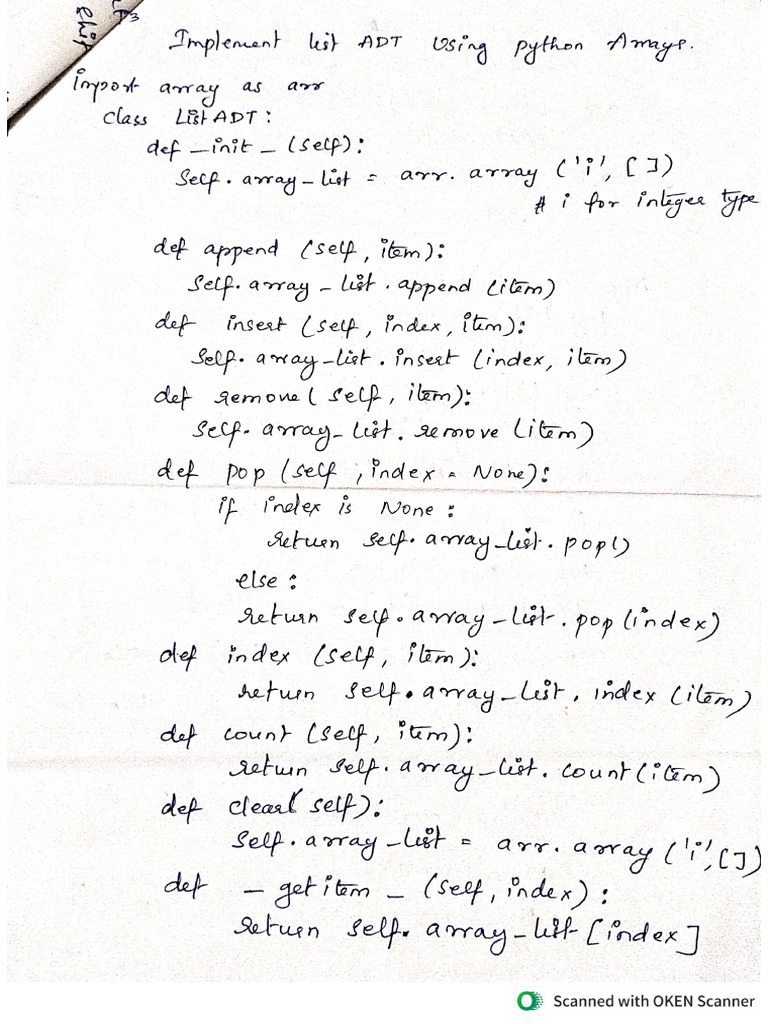 Implement list ADT Using python Arrays.
import array as arr
class ListADT:
def _init_ (self):
self.array_list = arr.array ('i', [ ])
# i for integer type
def append (self, item):
self.array_list.append (item)
def insert (self, index, item):
self.array_list.insert (index, item)
def remove( self, item):
self.array_list.remove (item)
def pop (self, index = None):
if index is None :
return self.array_list.pop()
else :
return self.array_list.pop (index)
def index (self, item):
return self.array_list.index (item)
def count (self, item):
return self.array_list.count (item)
def clear( self):
self.array_list = arr.array ('i', [ ])
def _getitem_ (self, index) :
return self.array_list [index]
Scanned with OKEN Scanner